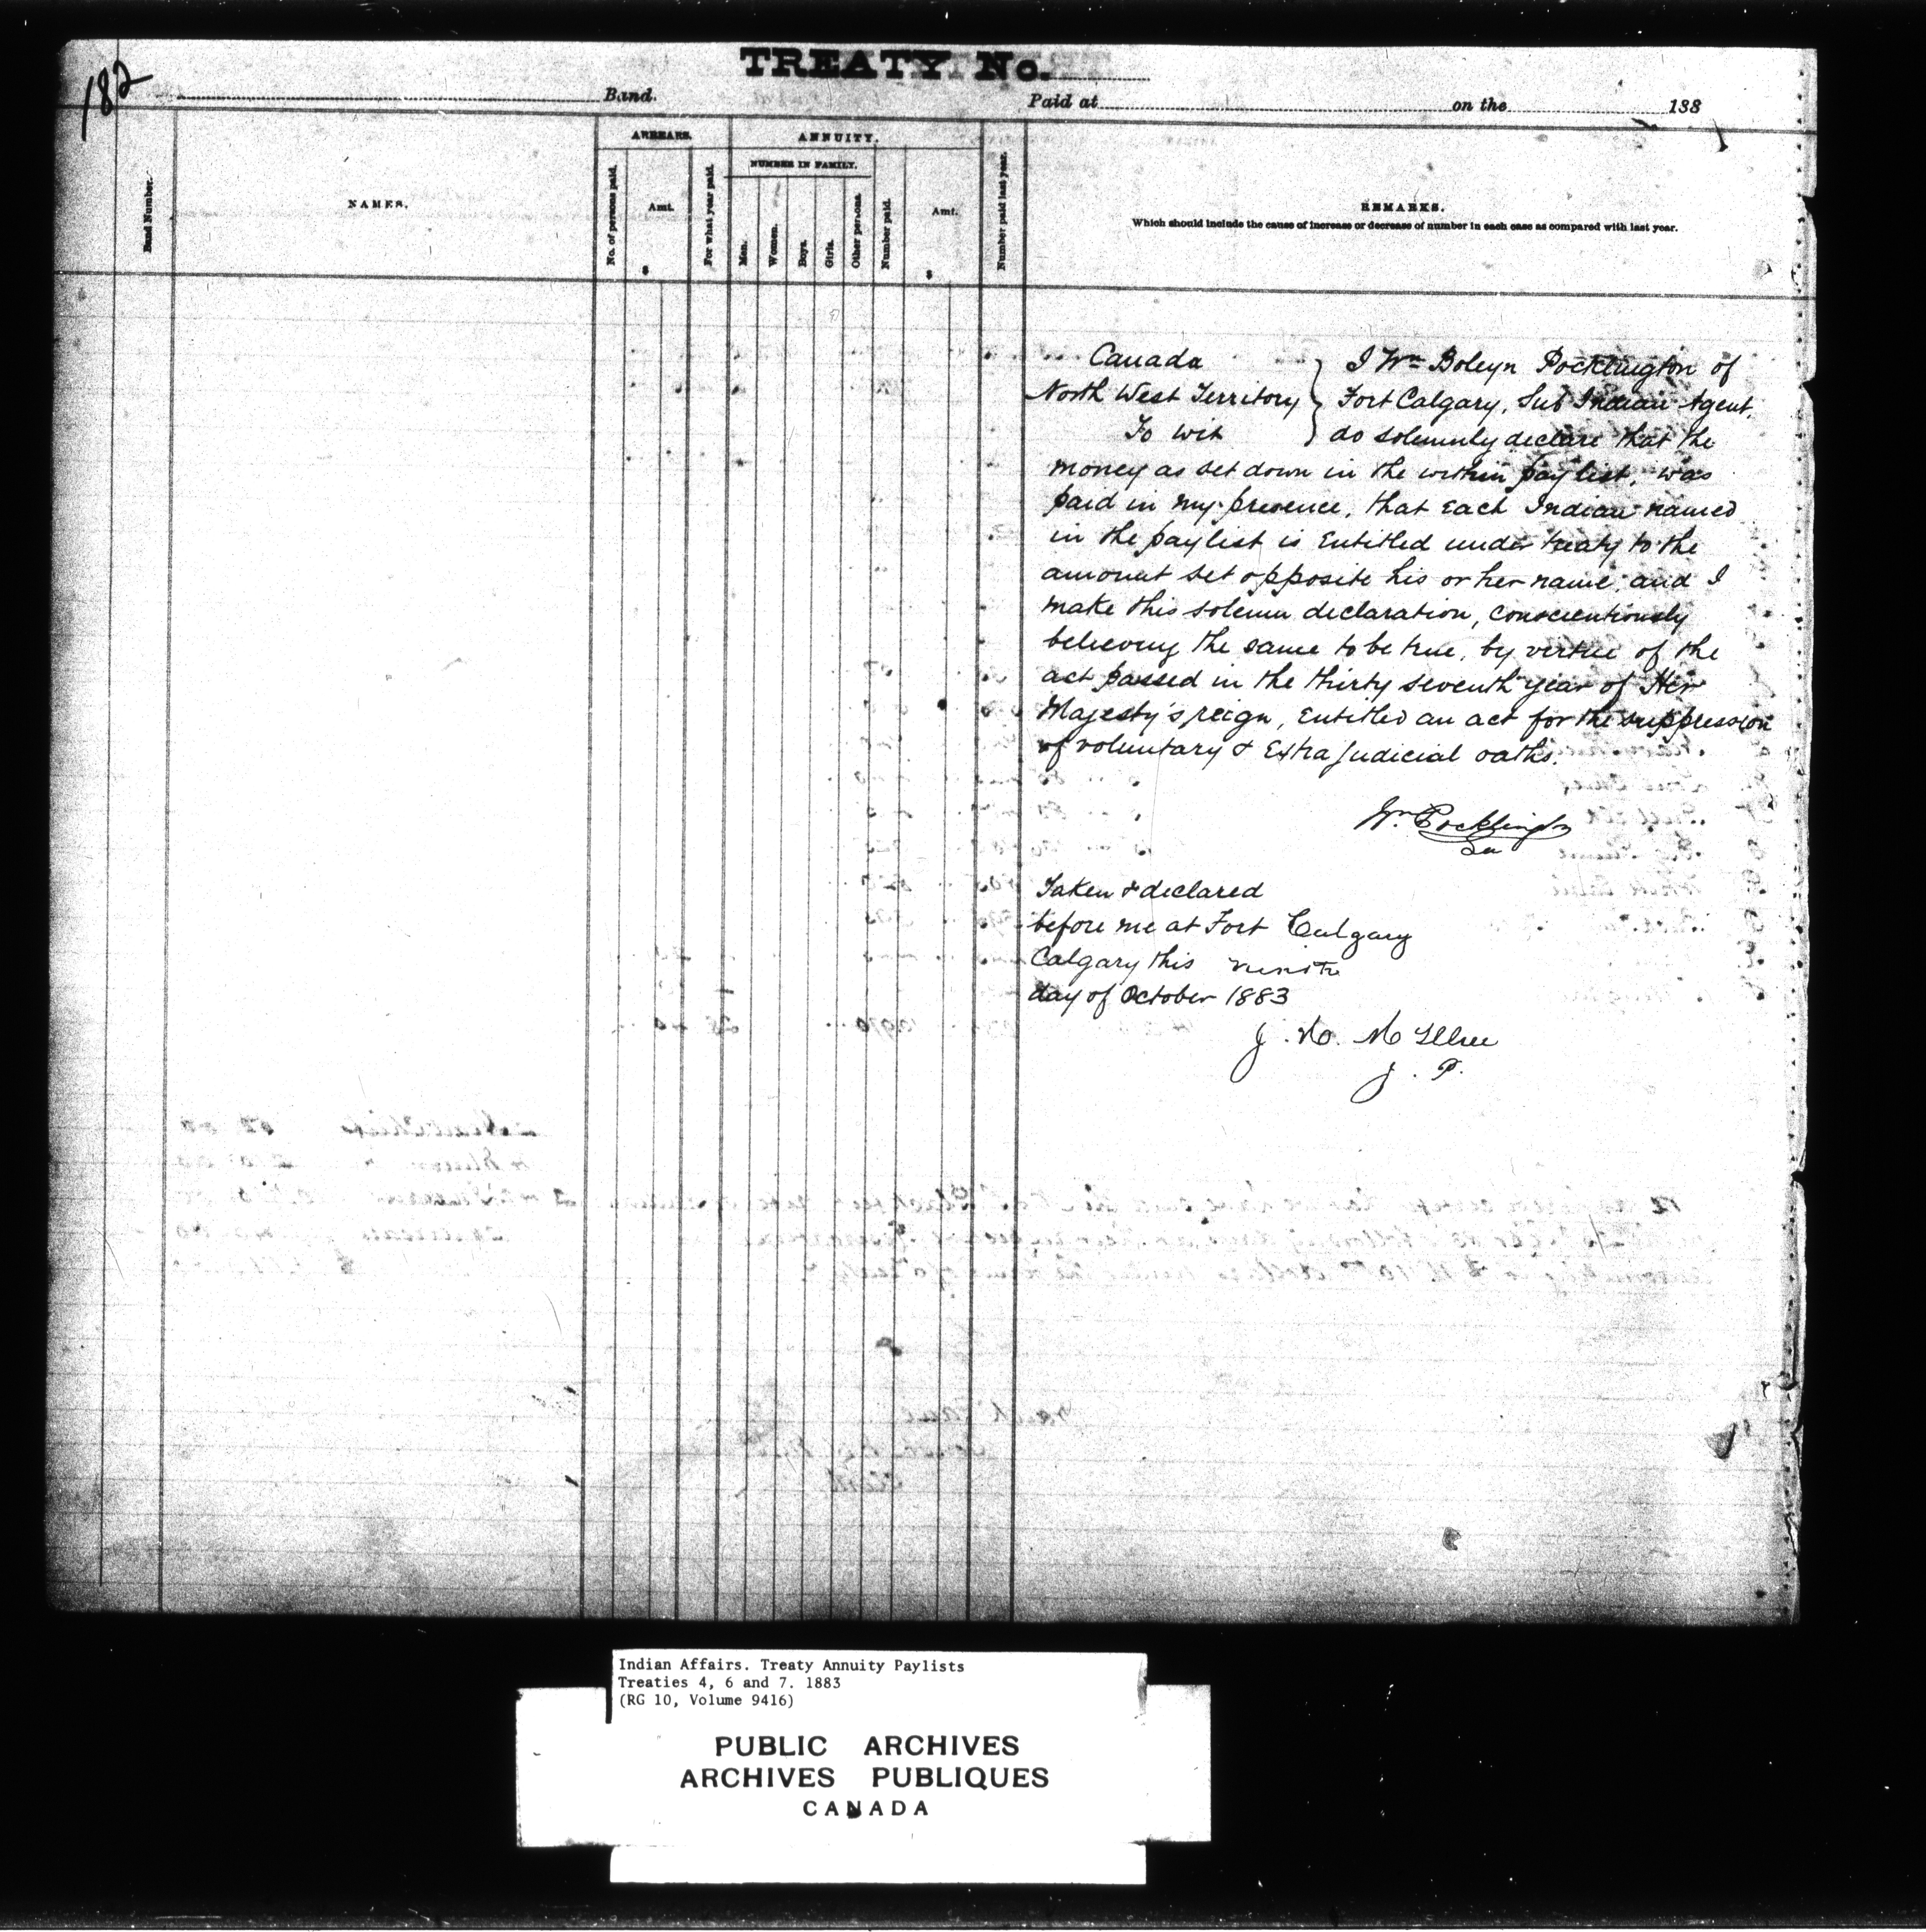 182
TREATY No.
Band.
Paid at
on the
188
Band Number.
NAMES.
ARREARS.
No. of persons paid.
Amt.
$
For what year paid.
ANNUITY.
NUMBER IN FAMILY.
Men.
Women.
Boys.
Girls.
Other persons.
Number paid.
Amt.
$
Number paid last year.
REMARKS.
Which should include the cause of increase or decrease of number in each case as compared with last year.
Canada } I Wm Boleyn Pocklington of
North West Territory } Fort Calgary, Sub Indian Agent,
To wit } do solemnly declare that the
money as set down in the within paylist, was
paid in my presence, that Each Indian named
in the paylist is Entitled under treaty to the
amount set opposite his or her name, and I
make this solemn declaration, conscientiously
believing the same to be true, by virtue of the
act passed in the thirty seventh year of Her
Majesty's reign, Entitled an act for the suppression
of voluntary & Extra Judicial oaths.
Wm Pocklington
Taken & declared
before me at Fort Calgary
Calgary this
day of October 1883
J.
J. P.
Indian Affairs. Treaty Annuity Paylists
Treaties 4, 6 and 7. 1883
(RG 10, Volume 9416)
PUBLIC ARCHIVES
ARCHIVES PUBLIQUES
CANADA